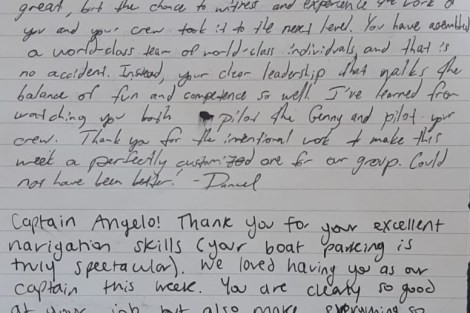 great, but the chance to witness and experience the work of
you and your crew took it to the next level. You have assembled
a world-class team of world-class individuals, and that is
no accident. Instead, your clear leadership that walks the
balance of fun and competence so well. I've learned from
watching you both pilot the Genny and pilot your
crew. Thank you for the intentional work to make this
week a perfectly customized one for our group. Could
not have been better! - Daniel
Captain Angelo! Thank you for your excellent
navigation skills (your boat parking is
truly spectacular). We loved having you as our
captain this week. You are clearly so good
at your job but also make everything so